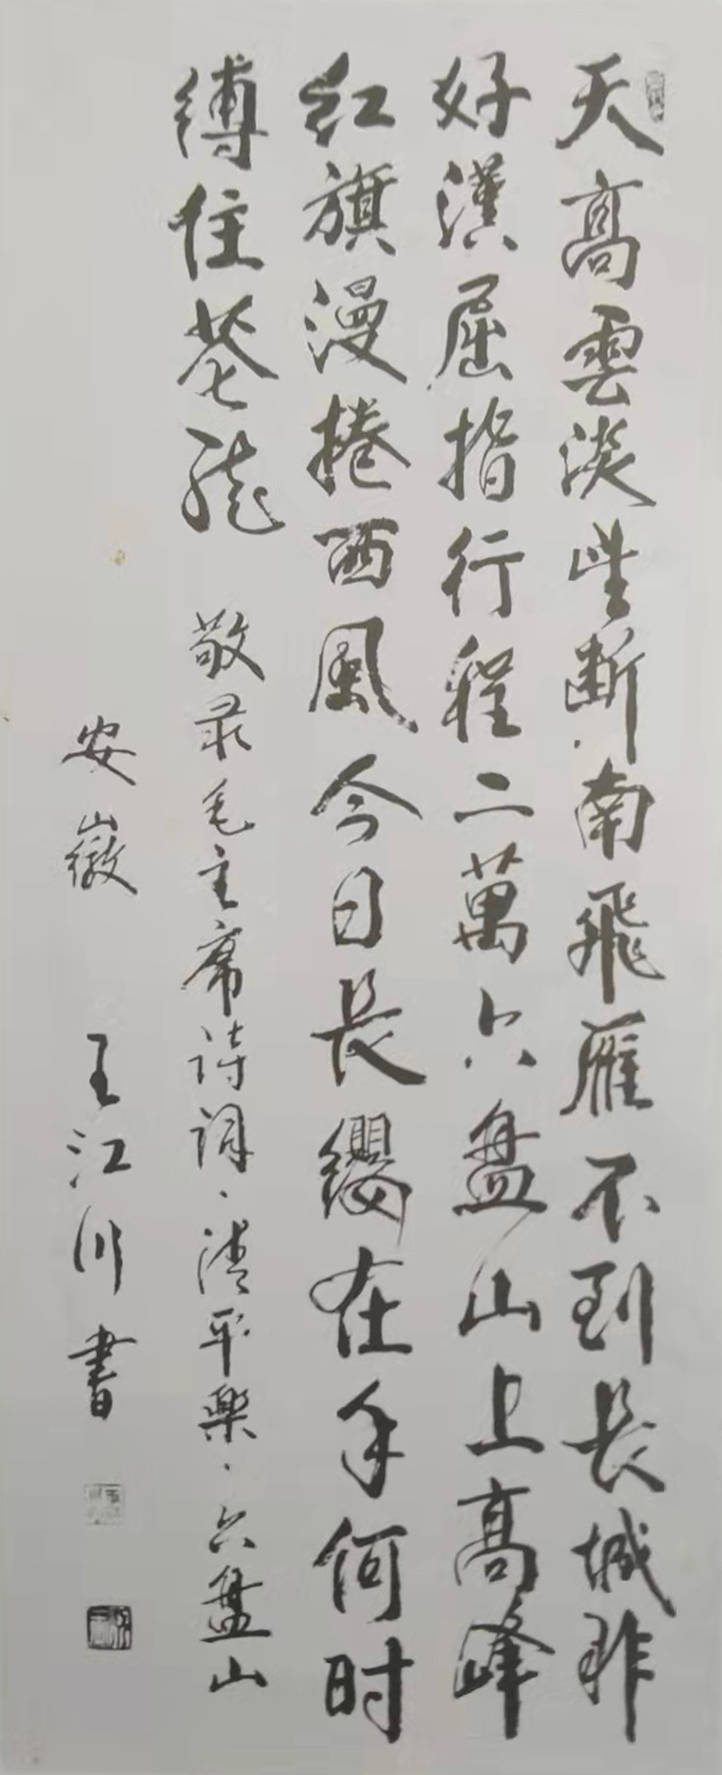 天高雲淡望断南飛雁不到長城非
好漢屈指行程二萬六盤山上高峰
红旗漫捲西風今日長纓在手何时
缚住苍龍
敬录毛主席诗词、清平樂、六盤山
安徽 王江川書